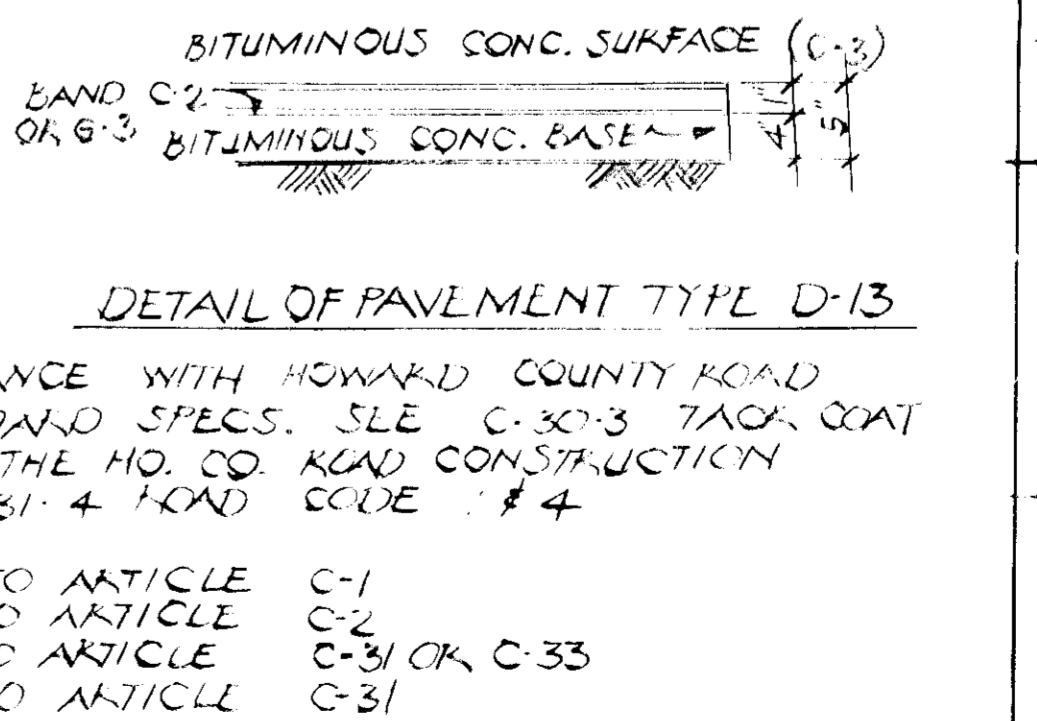 BITUMINOUS CONC. SURFACE (C-3)
BAND C-2
OR G-3
BITUMINOUS CONC. BASE
1"
4"
5"
DETAIL OF PAVEMENT TYPE D-13
ANCE WITH HOWARD COUNTY ROAD
DARD SPECS. SEE C-30-3 TACK COAT
THE HO. CO. ROAD CONSTRUCTION
31-4 ROAD CODE & 4
TO ARTICLE C-1
O ARTICLE C-2
O ARTICLE C-31 OR C-33
O ARTICLE C-31